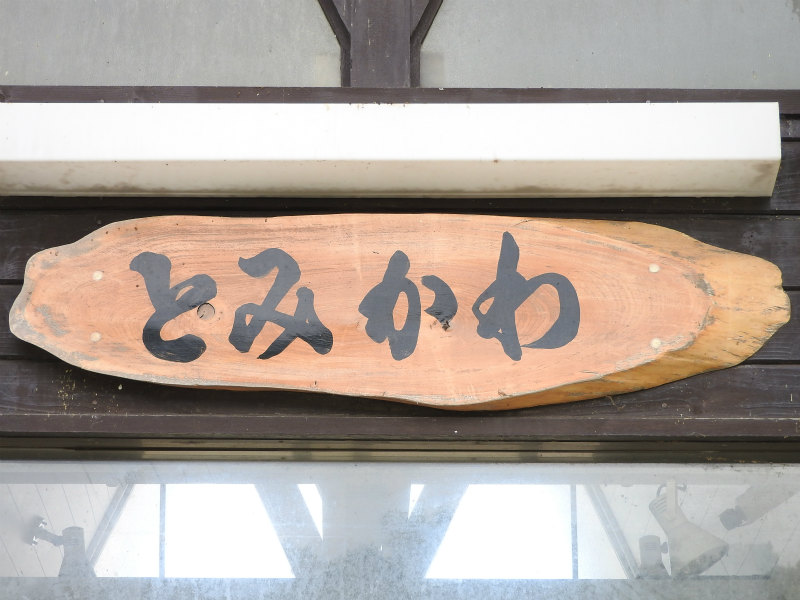 とみかわ